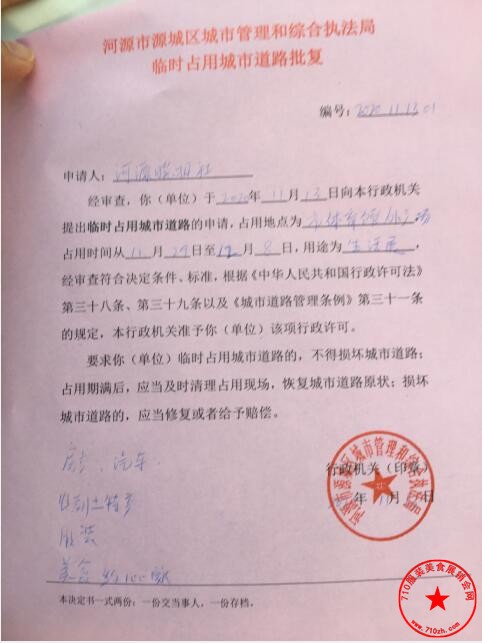 河源市源城区城市管理和综合执法局
临时占用城市道路批复
编号:2020 11.13 01
申请人:河源
经审查,你(单位)于2020年11月13日向本行政机关
提出临时占用城市道路的申请,占用地点为市体育馆
占用时间从11月29日至12月8日,用途为生活展,
经审查符合决定条件、标准,根据《中华人民共和国行政许可法》
第三十八条、第三十九条以及《城市道路管理条例》第三十一条
的规定,本行政机关准予你(单位)该项行政许可。
要求你(单位)临时占用城市道路的,不得损坏城市道路;
占用期满后,应当及时清理占用现场,恢复城市道路原状;损坏
城市道路的,应当修复或者给予赔偿。
房产、汽车
土特产
服装
美食 约100家
行政机关(印章)
年 月 日
河源市源城区城市管理和综合执法局
本决定书一式两份:一份交当事人,一份存档。
710服装美食展销会网
www.710zh.com